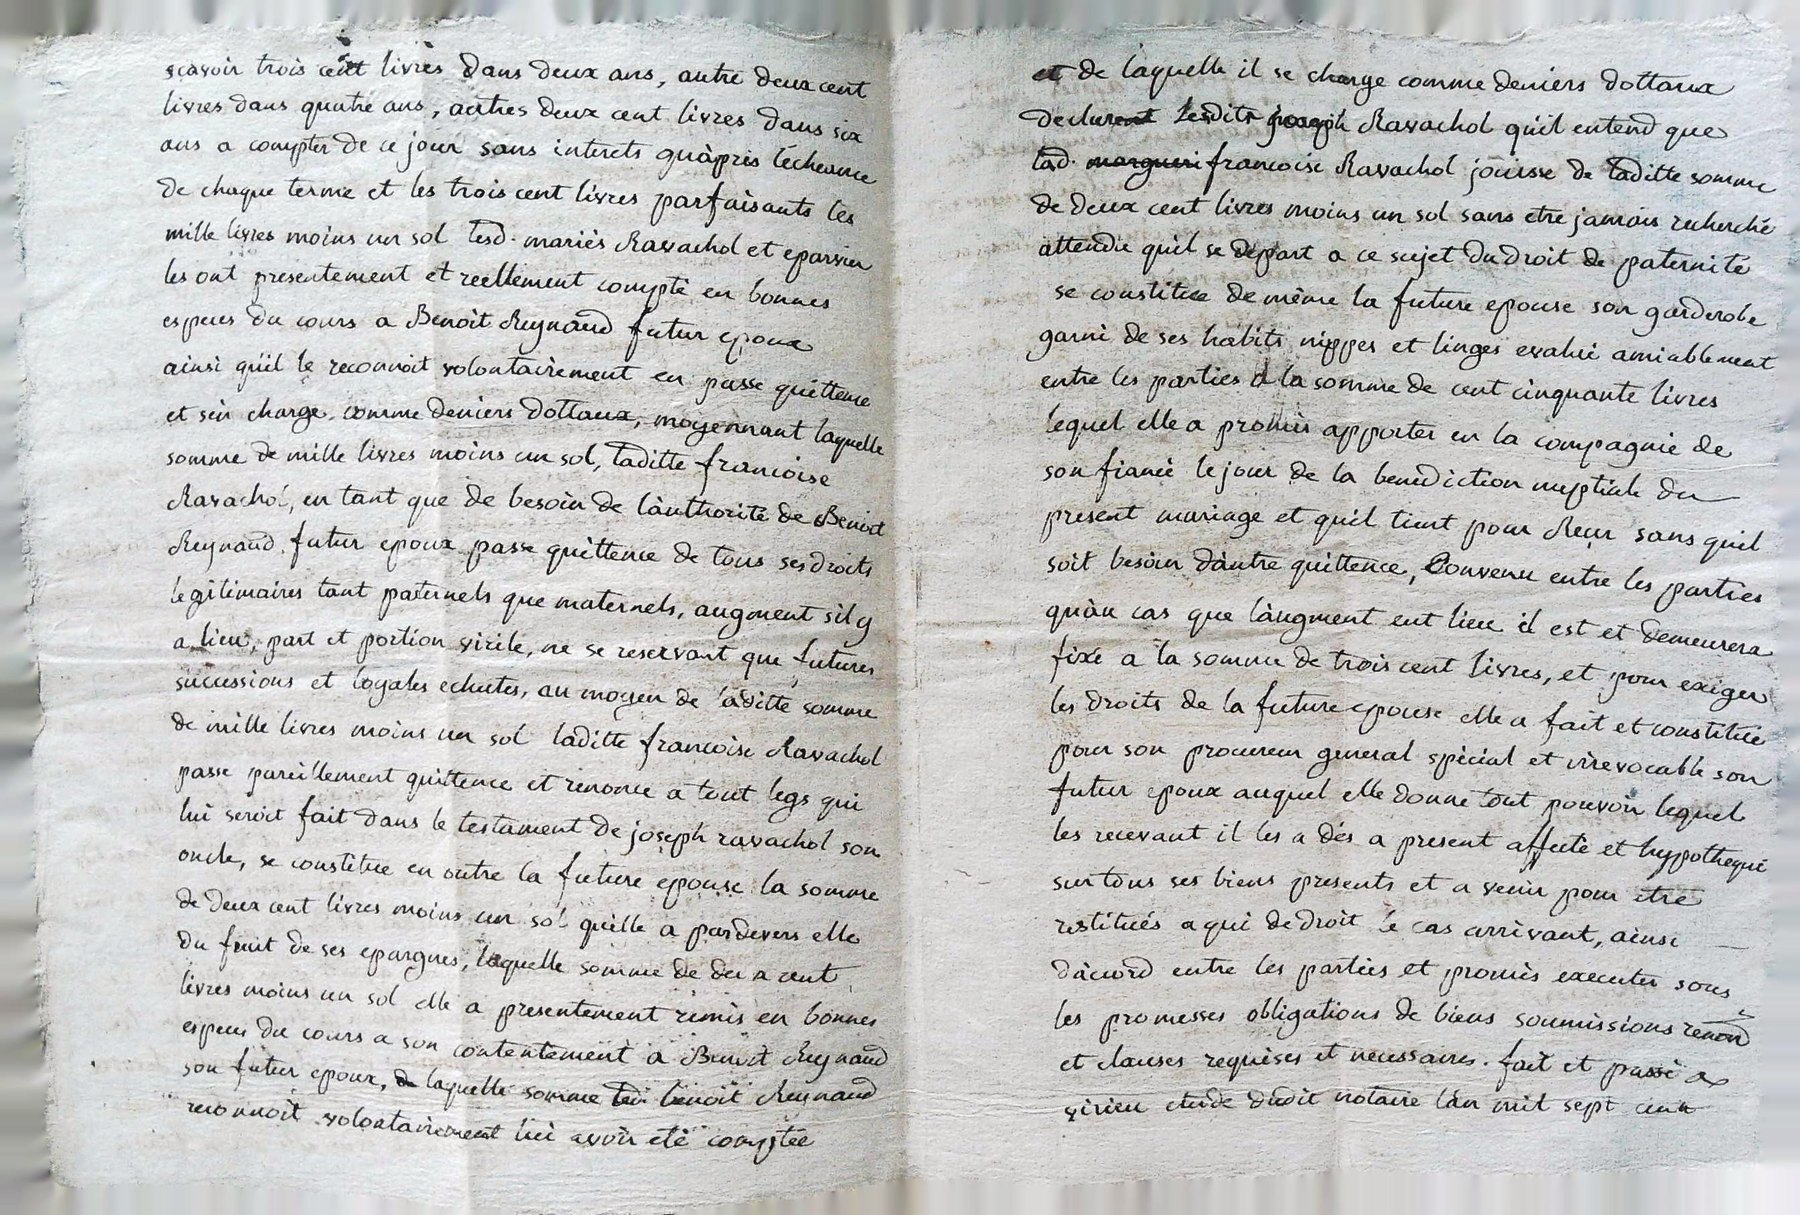 scavoir trois cent livres dans deux ans, autre deux cent
livres dans quatre ans, autres deux cent livres dans six
ans a compter de ce jour sans interets qu'àprès l'écheance
de chaque terme et les trois cent livres parfaisants les
mille livres moins un sol lesd. mariés Ravachol et eparvier
les ont presentement et reellement compté en bonnes
especes du cours a Benoit Reynaud futur epoux
ainsi qu'il le reconnoit volontairement en passe quittence
et s'en charge comme deniers dottaux, moyennant laquelle
somme de mille livres moins un sol, laditte francoise
Ravachol, en tant que de besoin de l'authorité de Benoit
Reynaud futur epoux passe quittence de tous ses droits
legitimaires tant paternels que maternels, augment s'il y
a lieu, part et portion virile, ne se reservant que futures
successions et loyales echutes, au moyen de laditte somme
de mille livres moins un sol laditte francoise Ravachol
passe pareillement quittence et renonce a tout legs qui
lui seroit fait dans le testament de joseph ravachol son
oncle, se constitue en outre la future epouse la somme
de deux cent livres moins un sol qu'elle a pardevers elle
du fruit de ses epargnes, laquelle somme de deux cent
livres moins un sol elle a presentement remis en bonnes
especes du cours a son contentement a Benoit Reynaud
son futur epoux, de laquelle somme led. benoit Reynaud
reconnoit volontairement lui avoir eté comptée
et de laquelle il se charge comme deniers dottaux
declarent lesdits joseph Ravachol qu'il entend que
lad. margueri francoise Ravachol jouisse de laditte somme
de deux cent livres moins un sol sans etre jamais recherché
attendu qu'il se depart a ce sujet du droit de paternité
se constitue de même la future epouse son garderobe
garni de ses habits nippes et linges evalué amiablement
entre les parties a la somme de cent cinquante livres
lequel elle a promis apporter en la compagnie de
son fiancé le jour de la benediction nuptiale du
present mariage et qu'il tient pour Reçu sans qu'il
soit besoin d'autre quittence, Convenu entre les parties
qu'au cas que l'augment eut lieu il est et demeurera
fixé a la somme de trois cent livres, et pour exiger
les droits de la future epouse elle a fait et constitué
pour son procureur general spécial et irrevocable son
futur epoux auquel elle donne tout pouvoir lequel
les recevant il les a dés a present affecté et hypothequé
sur tous ses biens presents et a venir pour etre
restitués a qui de droit le cas arrivant, ainsi
d'accord entre les parties et promis executer sous
les promesses obligations de biens soumissions renond
et clauses requises et necessaires. fait et passé a
virieu etude dudit notaire l'an mil sept cent